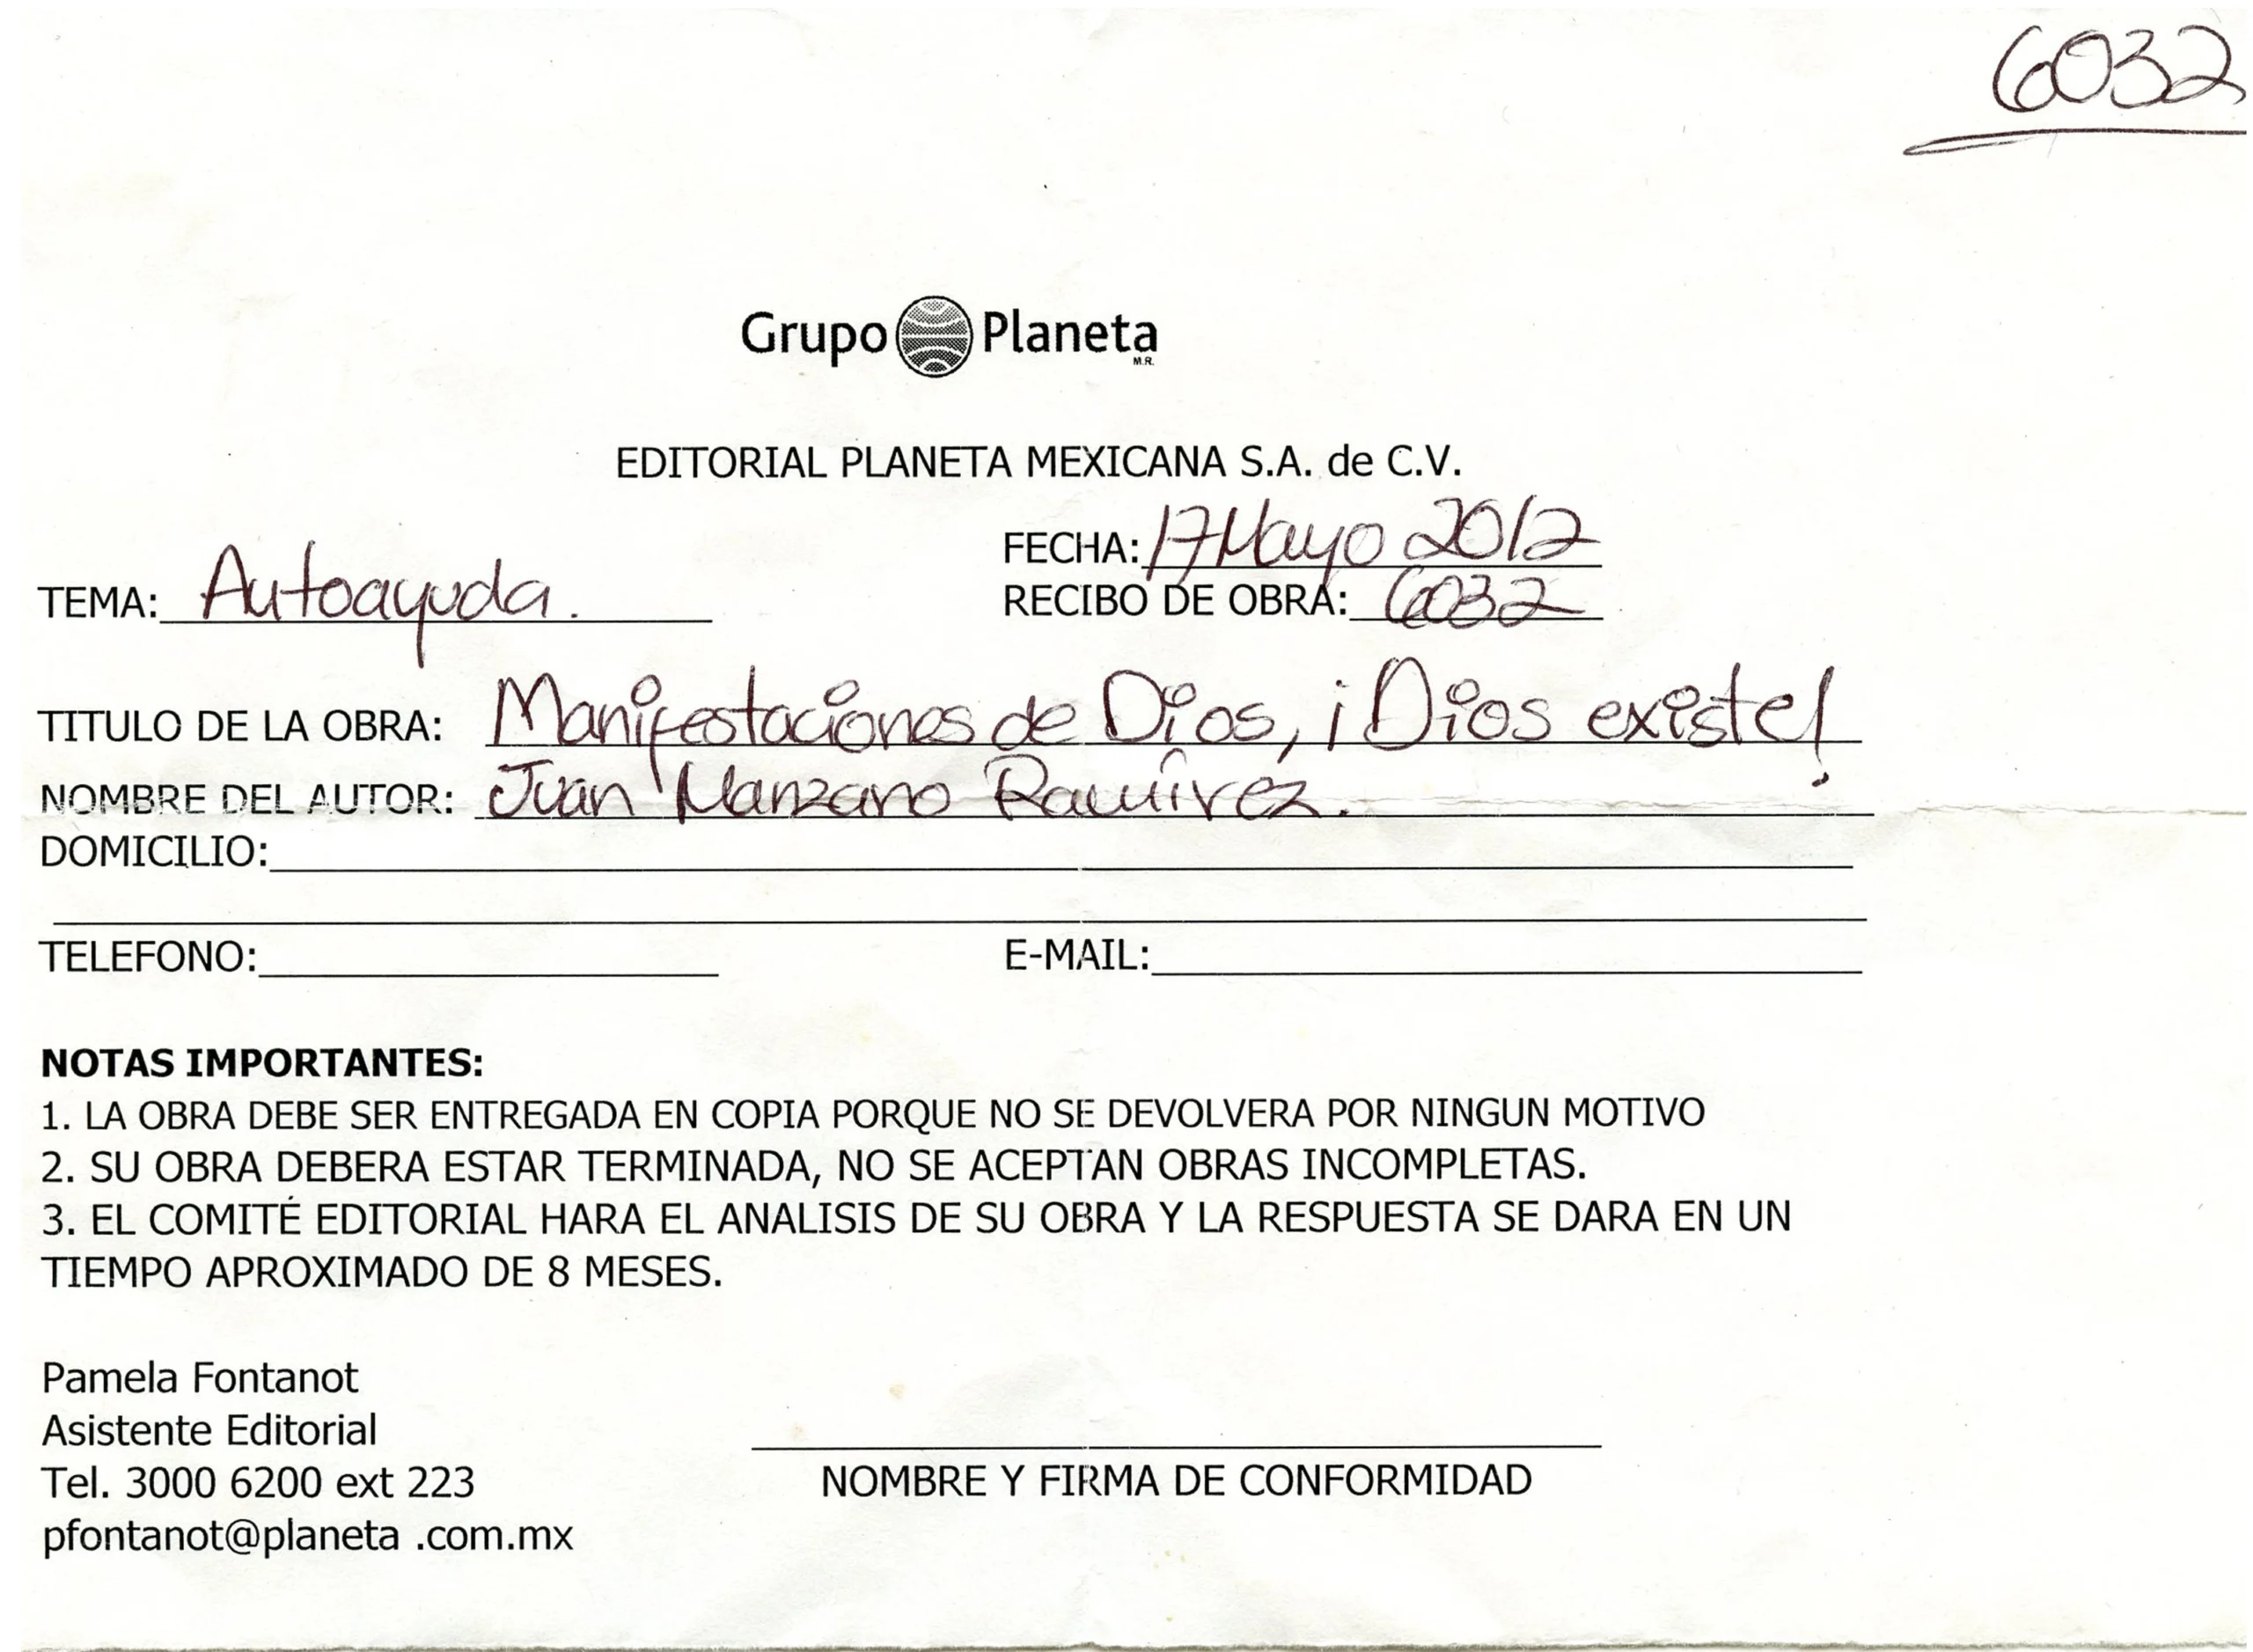 6032
Grupo Planeta
M.R.
EDITORIAL PLANETA MEXICANA S.A. de C.V.
FECHA: 17 Mayo 2012
TEMA: Autoayuda.
RECIBO DE OBRA: 6032
TITULO DE LA OBRA: Manifestaciones de Dios, ¡Dios existe!
NOMBRE DEL AUTOR: Juan Manzano Ramírez.
DOMICILIO:
TELEFONO: E-MAIL:
NOTAS IMPORTANTES:
1. LA OBRA DEBE SER ENTREGADA EN COPIA PORQUE NO SE DEVOLVERA POR NINGUN MOTIVO
2. SU OBRA DEBERA ESTAR TERMINADA, NO SE ACEPTAN OBRAS INCOMPLETAS.
3. EL COMITÉ EDITORIAL HARA EL ANALISIS DE SU OBRA Y LA RESPUESTA SE DARA EN UN
TIEMPO APROXIMADO DE 8 MESES.
Pamela Fontanot
Asistente Editorial
Tel. 3000 6200 ext 223
pfontanot@planeta .com.mx
NOMBRE Y FIRMA DE CONFORMIDAD